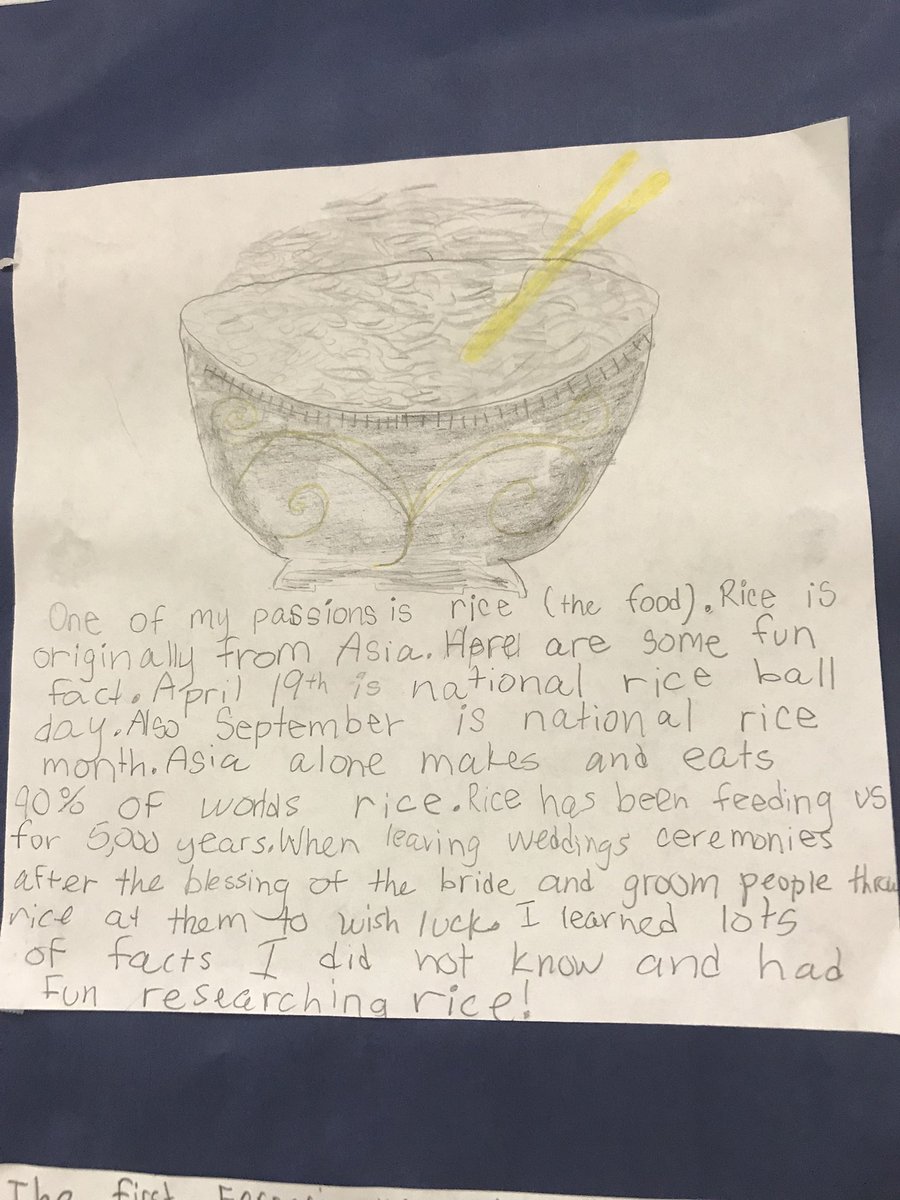 One of my passions is rice (the food). Rice is
originally from Asia. Here are some fun
fact. April 19th is national rice ball
day. Also September is national rice
month. Asia alone makes and eats
90% of worlds rice. Rice has been feeding us
for 5,000 years. When leaving weddings ceremonies
after the blessing of the bride and groom people throw
rice at them to wish luck. I learned lots
of facts I did not know and had
fun researching rice!
The first